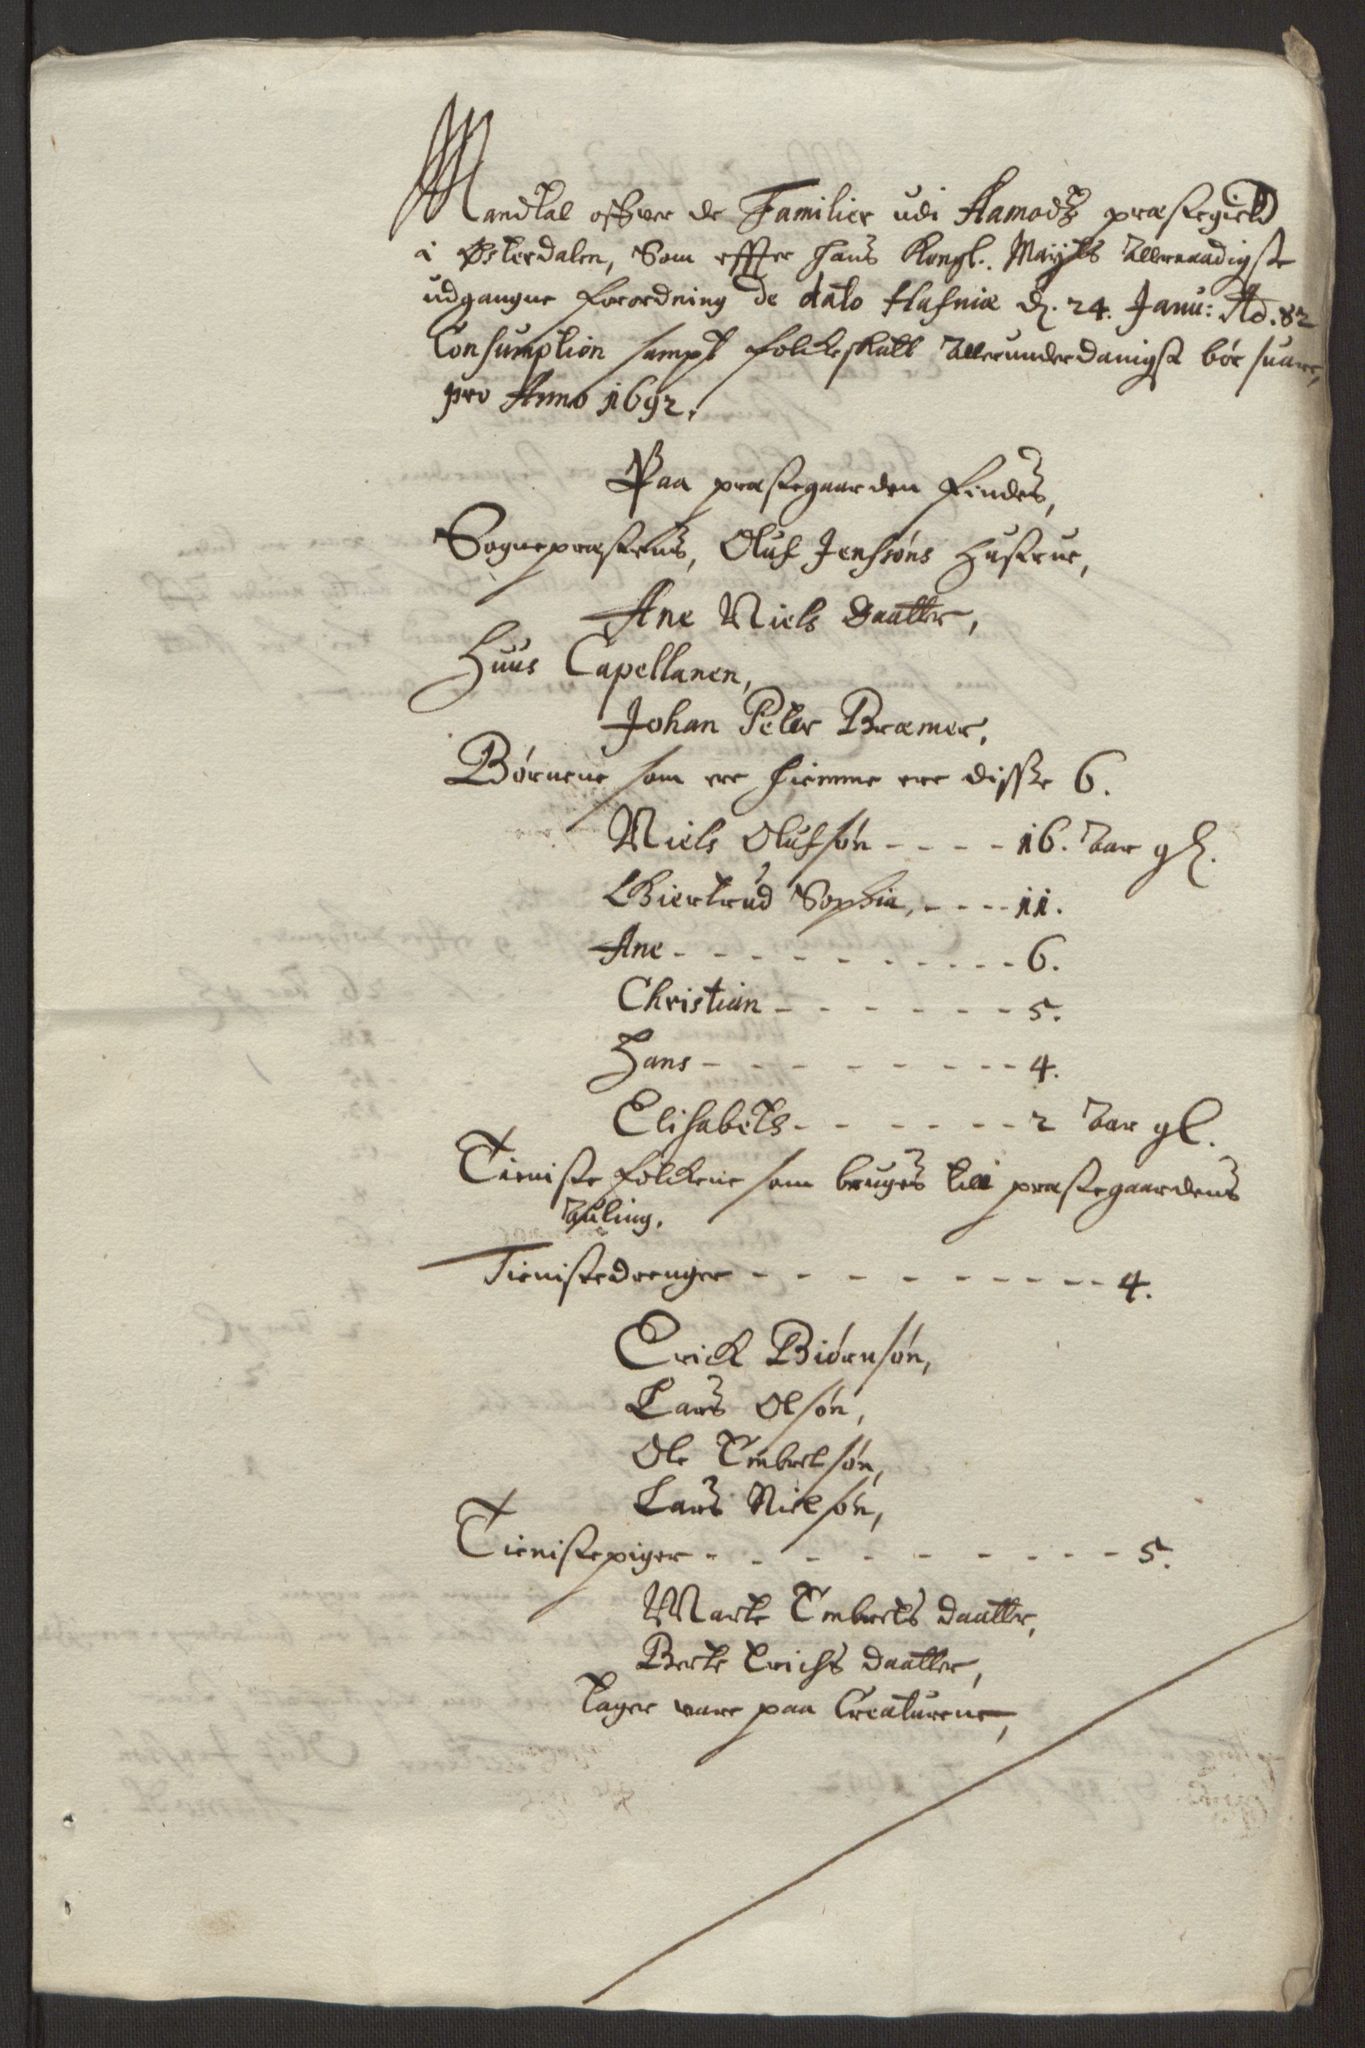 Mandtal offver de Familier udi Aamodtz præstegield
i Østerdalen, Som effter hans Kongl. Mayts allernaadigste
udgangne forordning de dato Hafniæ d. 24. Janu: Ao. 82
Consumption sampt folckeskatt allerunderdanigst bør suare,
pro Anno 1692.
Paa præstegaarden findes,
Sognepræstens, Oluf Jenssøns Hustrue,
Ane Niels daatter,
Huus Capellanen,
Johan Peter Bræmer,
Børnene som ere hiemme ere disse 6.
Niels Olufsøn - - - - 16. aar gl.
Giertrud Sophia, - - - - 11.
Ane - - - - - - - - - - - 6.
Christian - - - - - - 5.
Hans - - - - - - - - - 4.
Elisabeth - - - - - - 2 aar gl.
Tieniste folckene som bruges till præstegaardens
auling.
Tienistedrenger - - - - - - - - - 4.
Erick Biørnsøn,
Lars Olsøn,
Ole Embretsøn,
Lars Nielsøn,
Tienistepiger - - - - - - - - - 5.
Marte Embrets daatter,
Berte Erichs daatter,
tager vare paa Creaturene,